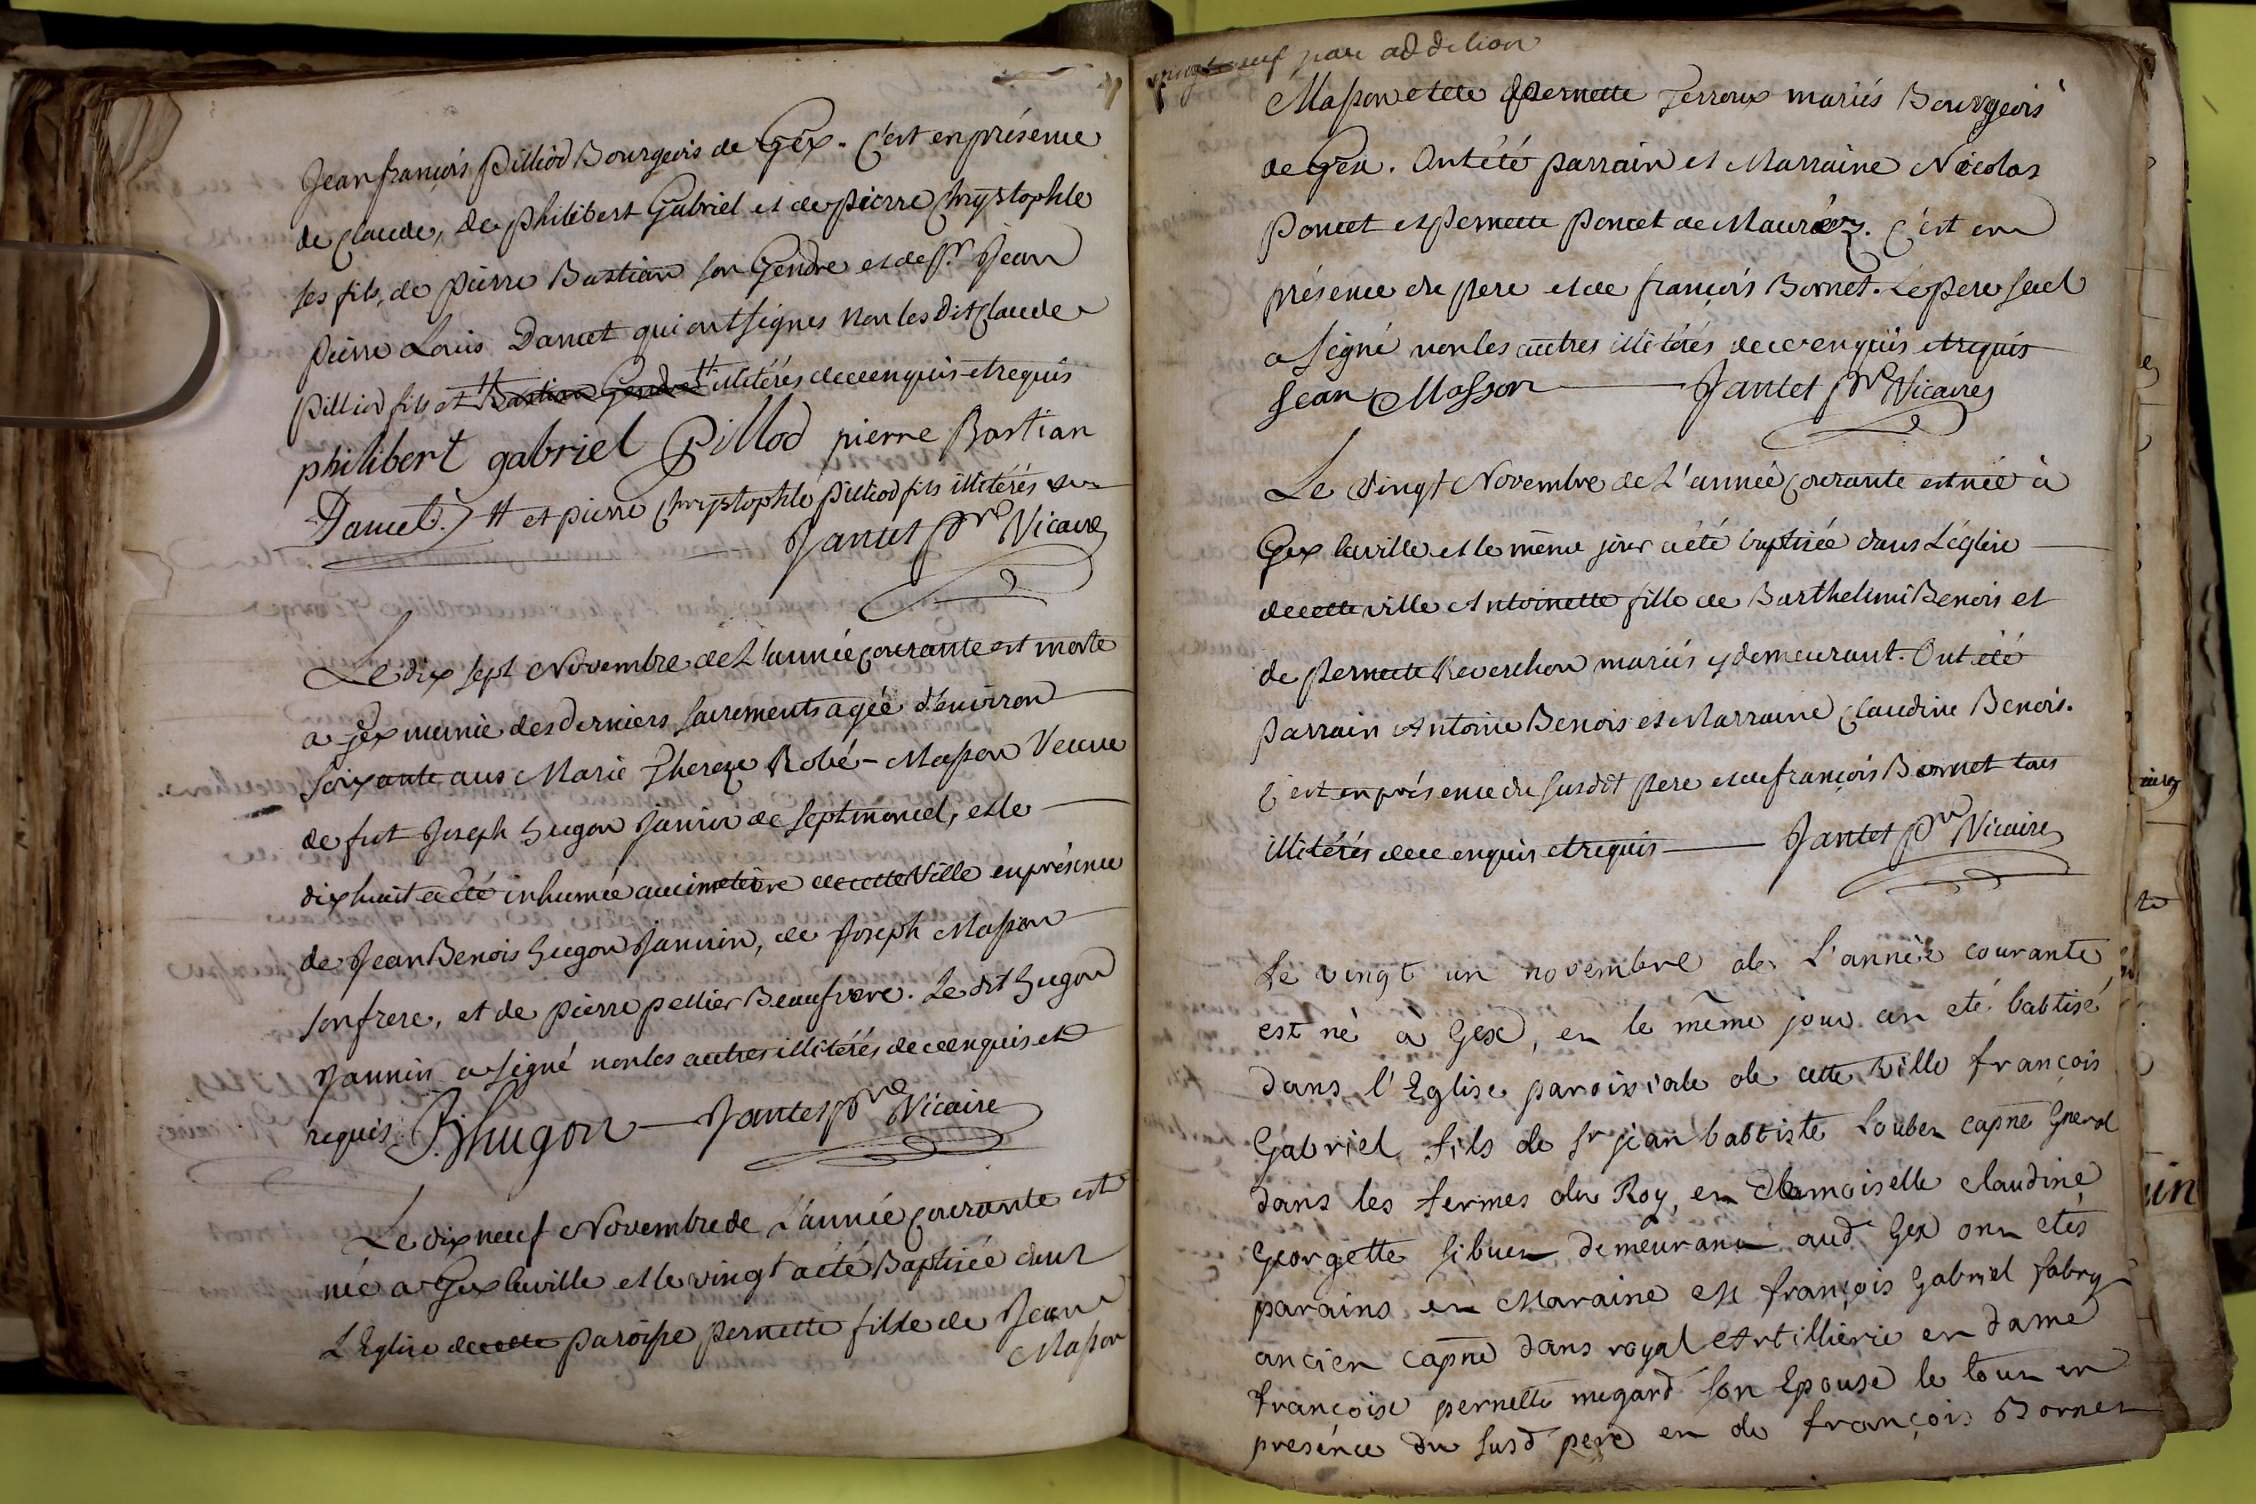 Jean françois Pilliod Bourgeois de Gex. C'est en présence
de Claude, de philibert Gabriel et de pierre Chrystophle
ses fils, de pierre Bastian son Gendre et de Sr. Jean
pierre Louis Dancet qui ont signés non les dit Claude
pilliod fils et Bastian Gendre # illitérés de ce enquis et requis
philibert gabriel Pillod pierre Bastian
Dancet. # et pierre Chrystophle pilliod fils illitérés
Jantet pre Vicaire
Le dix sept Novembre de L'année courante est morte
a Gex munie des derniers sacrements agée d'environ
soixante ans Marie Thereze Robé-Masson Veuve
de fut Joseph hugon Jannin de septmoncel, et le
dix huit a été inhumée au cimetière de cette Ville en présence
de Jean Benois hugon Jannin, de Joseph Masson
son frere, et de pierre pellier Beaufrere. Le dit hugon
Jannin a signé non les autres illitérés de ce enquis et
requis. J. B. hugon Jantet pre Vicaire
Le dix neuf Novembre de L'année courante est
née a Gex la ville et le vingt a été Baptisée dans
L'Eglise de cette paroisse pernette fille de Jean
Masson
vingt neuf par addition
Masson et de pernette Perroux mariés Bourgeois
de Gex. Ont été parrain et Marraine Nicolas
poncet et pernette poncet de Maurez. C'est en
présence du pere et de françois Bornet. Le pere seul
a signé non les autres illitérés de ce enquis et requis
Jean Masson Jantet pre Vicaire
Le vingt Novembre de L'année courante est née à
Gex la ville et le même jour a été baptisée dans L'église
de cette ville Antoinette fille de Barthelimi Benois et
de pernette Reverchon mariés y demeurant. Ont été
parrain Antoine Benois et Marraine Claudine Benois.
C'est en présence du susdit pere et de françois Bornet tous
illitérés de ce enquis et requis Jantet pre Vicaire
Le vingt un novembre de L'année courante
est né à Gex, et le même jour an eté babtisé
dans l'Eglise paroissiale de cette ville françois
Gabriel fils de Sr jean babtiste Louber capne Gneral
dans les fermes du Roy, et Demoiselle claudine
Georgette sibuet demeurant aud Gex ont etés
parains et Maraine Mr françois Gabriel fabry
ancien capne dans royal Artillierie et dame
françoise pernette mugard son Epouse le tout en
présence du susd pere et de françois Bornet